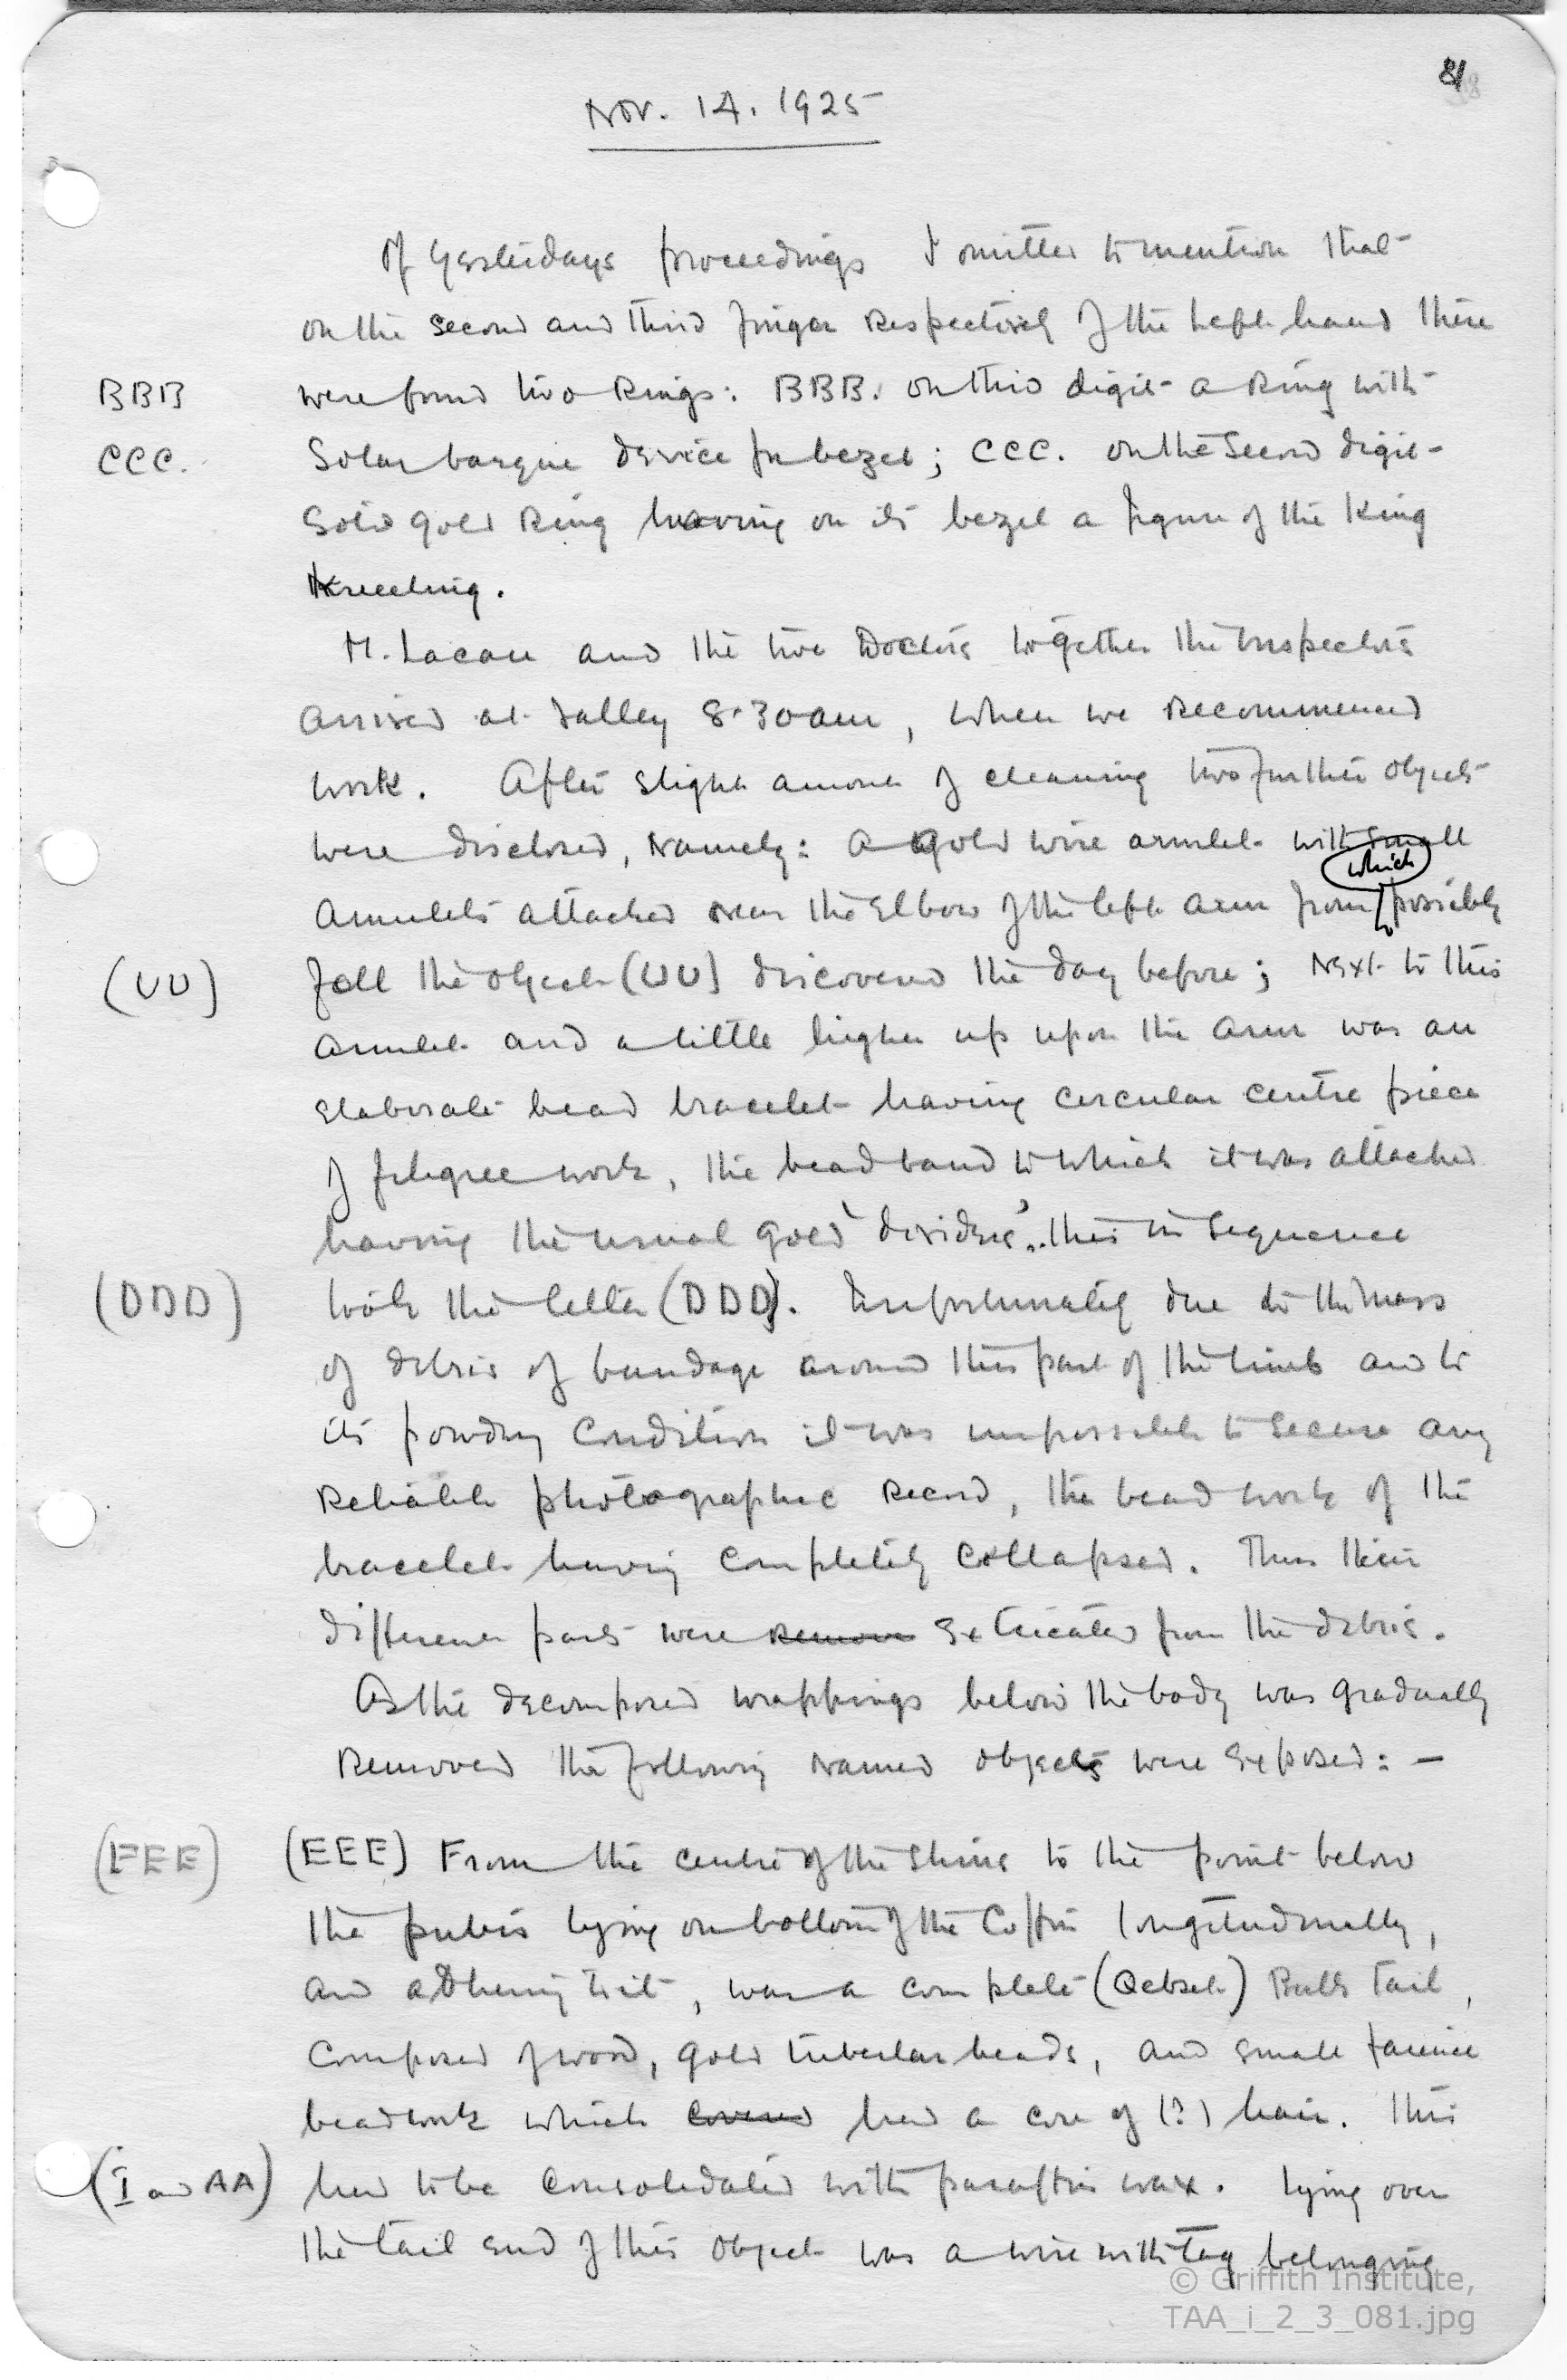 81
Nov. 14. 1925
Of yesterdays proceedings I omitted to mention that
on the second and third finger respectively of the left hand there
BBB were found two rings: BBB. on third digit a ring with
CCC. Solar barque device for bezel; CCC. on the second digit
Solid gold ring having on its bezel a figure of the King
kneeling.
M. Lacau and the two Doctors together the Inspectors
arrived at Valley 8.30 am, when we recommenced
work. After slight amount of cleaning two further objects
were disclosed, namely: a gold wire armlet with small
which
amulets attached near the elbow of the left arm from possibly
(UU) fell the object (UU) discovered the day before; next to this
armlet and a little higher up upon the arm was an
elaborate bead bracelet having circular centre piece
of filigree work, the bead band to which it was attached
having the usual gold 'dividers'. this in sequence
(DDD) took the letter (DDD). Unfortunately due to the mass
of debris of bandage around this part of the limb and to
its powdery condition it was impossible to secure any
reliable photographic record, the bead work of the
bracelet having completely collapsed. Thus their
different parts were remove extricated from the debris.
As the decomposed wrappings below the body was gradually
removed the following named objects were exposed: —
(EEE) (EEE) From the centre of the shins to the point below
the pubis lying on bottom of the Coffin longitudinally,
and adhering to it, was a complete (Qebseh) Bulls tail,
composed of wood, gold tubular beads, and small faience
beadwork which covered had a core of (?) hair. This
(I and AA) had to be consolidated with paraffin wax. Lying over
the tail end of this object was a wire with tag belonging
© Griffith Institute,
TAA_i_2_3_081.jpg